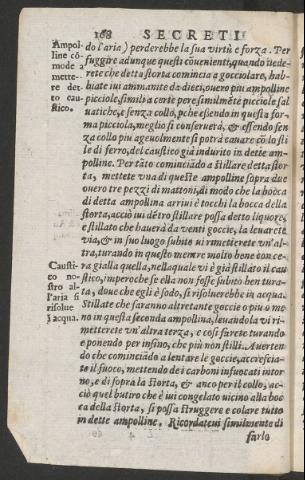 168 SECRETI
do l'aria) perderebbe la sua virtù e forza. Per
fuggire adunque questi cōuenienti, quando uede-
rete che detta storta comincia a gocciolare, hab-
biate iui ammanite da dieci, ouero piu ampolline
picciole, simili a certe pere similmēte picciole sal
uatiche, e senza collo, pche essendo in questa for-
ma picciola, meglio si conseruerà, & essendo sen
za collo piu ageuolmente si potrà cauare cō lo sti
le di ferro, del caustico già indurito in dette am-
polline. Per tāto cominciādo a stillare detta stor
ta, mettete vna di queste ampolline sopra due
ouero tre pezzi di mattoni, di modo che la bocca
di detta ampolina arriui è tocchi la bocca della
storta, acciò iui dētro stillare possa detto liquore,
e stillato che hauerà da venti goccie, la leuarete
via, & in suo luogo subito ui rimetterete vn'al-
tra, turando in questo mentre molto bene con ce-
ra gialla quella, nella quale vi è già stillato il cau
stico, imperoche se ella non fosse subito ben tura-
ta, doue che egli è sodo, si risoluerebbe in acqua.
Stillate che saranno altretante goccie o piu o me
no in questa seconda ampollina, leuandola vi ri-
metterete vn'altra terza, e cosi farete turando
e ponendo per insino, che più non stilli. Auerten
do che cominciādo a lentare le goccie, accrescia-
te il fuoco, mettendo de i carboni infuocati intor
no, e di sopra la storta, & anco per il collo, ac-
ciò quel butiro che è iui congelato uicino alla boc
ca della storta, si possa struggere e colare tutto
in dette ampolline. Ricordateui similmente di
farlo
Ampol-
line cō-
mode a
mette-
re det-
to cau-
stico.
Causti-
co no-
stro al-
l'aria si
risolue
ī acqua.